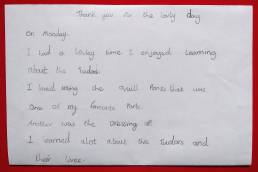 Thank you for the lovly day
on Monday.
I had a lovley time I enjoyed learning
about the Tudors.
I loved using the quill Pones that was
One of my favourite Parts.
Another was the Dressing up
I learned alot about the Tudors and
their lives.